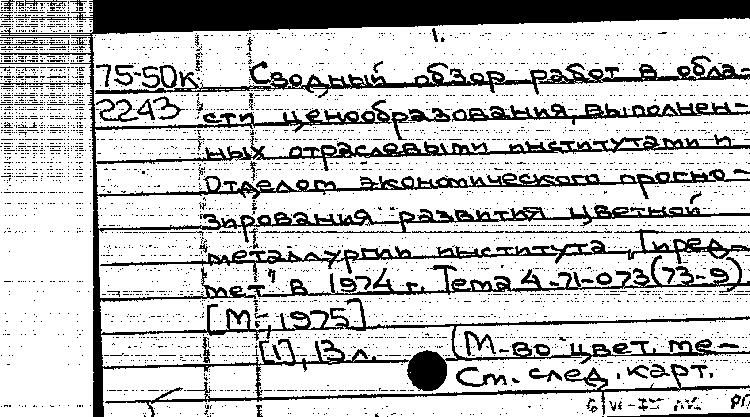 1.
75-50к Сводный обзор работ в обла-
2243 сти ценообразования, выполнен-
ных отраслевыми институтами и
Отделом экономического прогно-
зирования развития цветной
металлургии института „Гипред-
мет" в 1974 г. Тема 4-71-073(73-9)
[М., 1975]
[1], 13 л. (М-во цвет. ме-
См. след. карт.